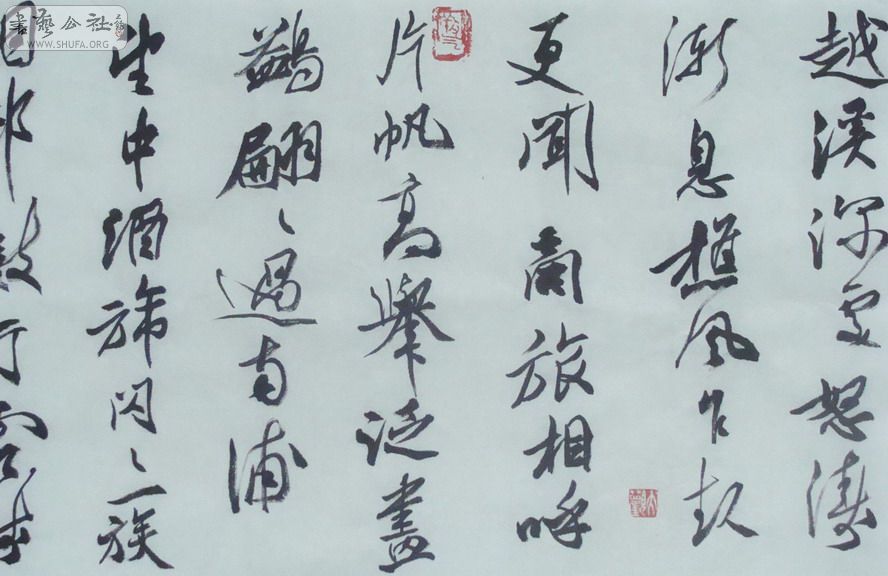 越溪深處怒濤
漸息樵風乍起
更聞商旅相呼
片帆高舉泛畫
鷁翩〻過南浦
望中酒旆閃〻一族
書藝公社
WWW.SHUFA.ORG